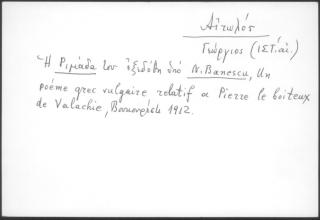 Αἰτωλός
Γεώργιος (ΙΣΤ΄ αἰ.)
Ἡ Ριμάδα του ἐξεδόθη ὑπό N. Banescu, Un
poéme grec vulgaire relatif a Pierre le boiteux
de Valachie, Βουκουρέστι 1912.